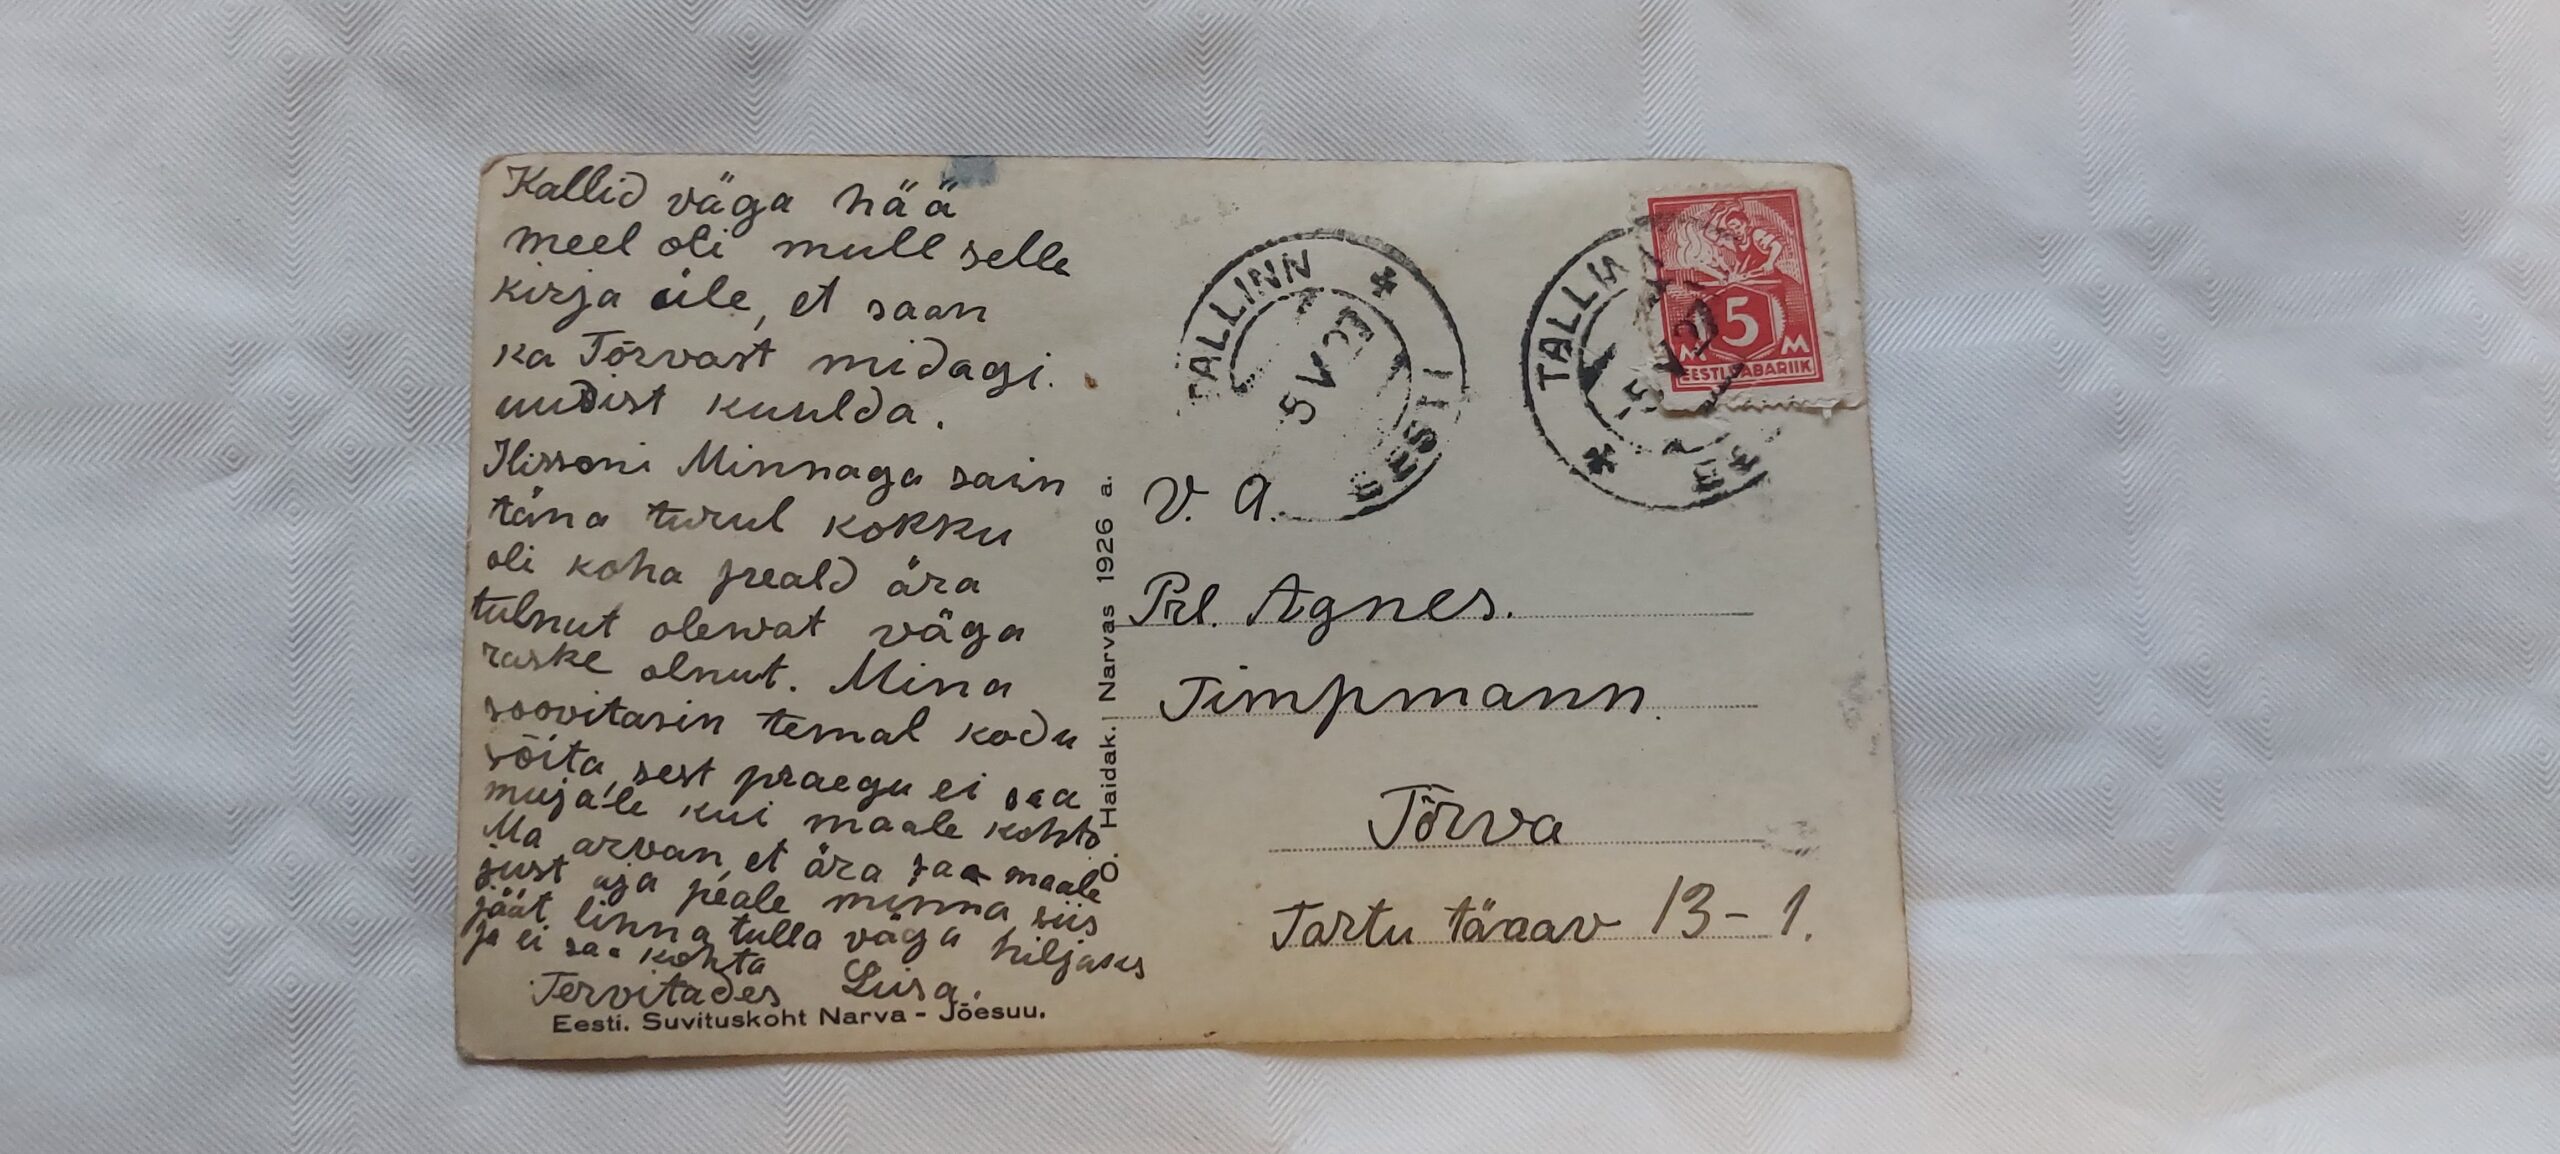 Kallid väga hää
meel oli mull selle
kirja üle, et saan
ka Tõrvast midagi.
uudist kuulda.
Minnaga sain
täna turul kokku
oli koha peald ära
tulnut olewat väga
raske olnut. Mina
soovitasin temal kodu
sõita, sest praegu ei saa
mujale kui maale kohta
Ma arvan, et ära saa maale
just aja peale minna, siis
jäät linna tulla väga hiljaks
ja ei saa kohta
Tervitades Liisa.
Eesti. Suvituskoht Narva - Jõesuu.
O. Haidak. Narvas 1926 a.
TALLINN
5 V 27
EESTI
TALLINN
5 V 27
5
M M
EESTI VABARIIK
V. A.
Prl. Agnes.
Timpmann.
Tõrva
Tartu tänav 13-1.